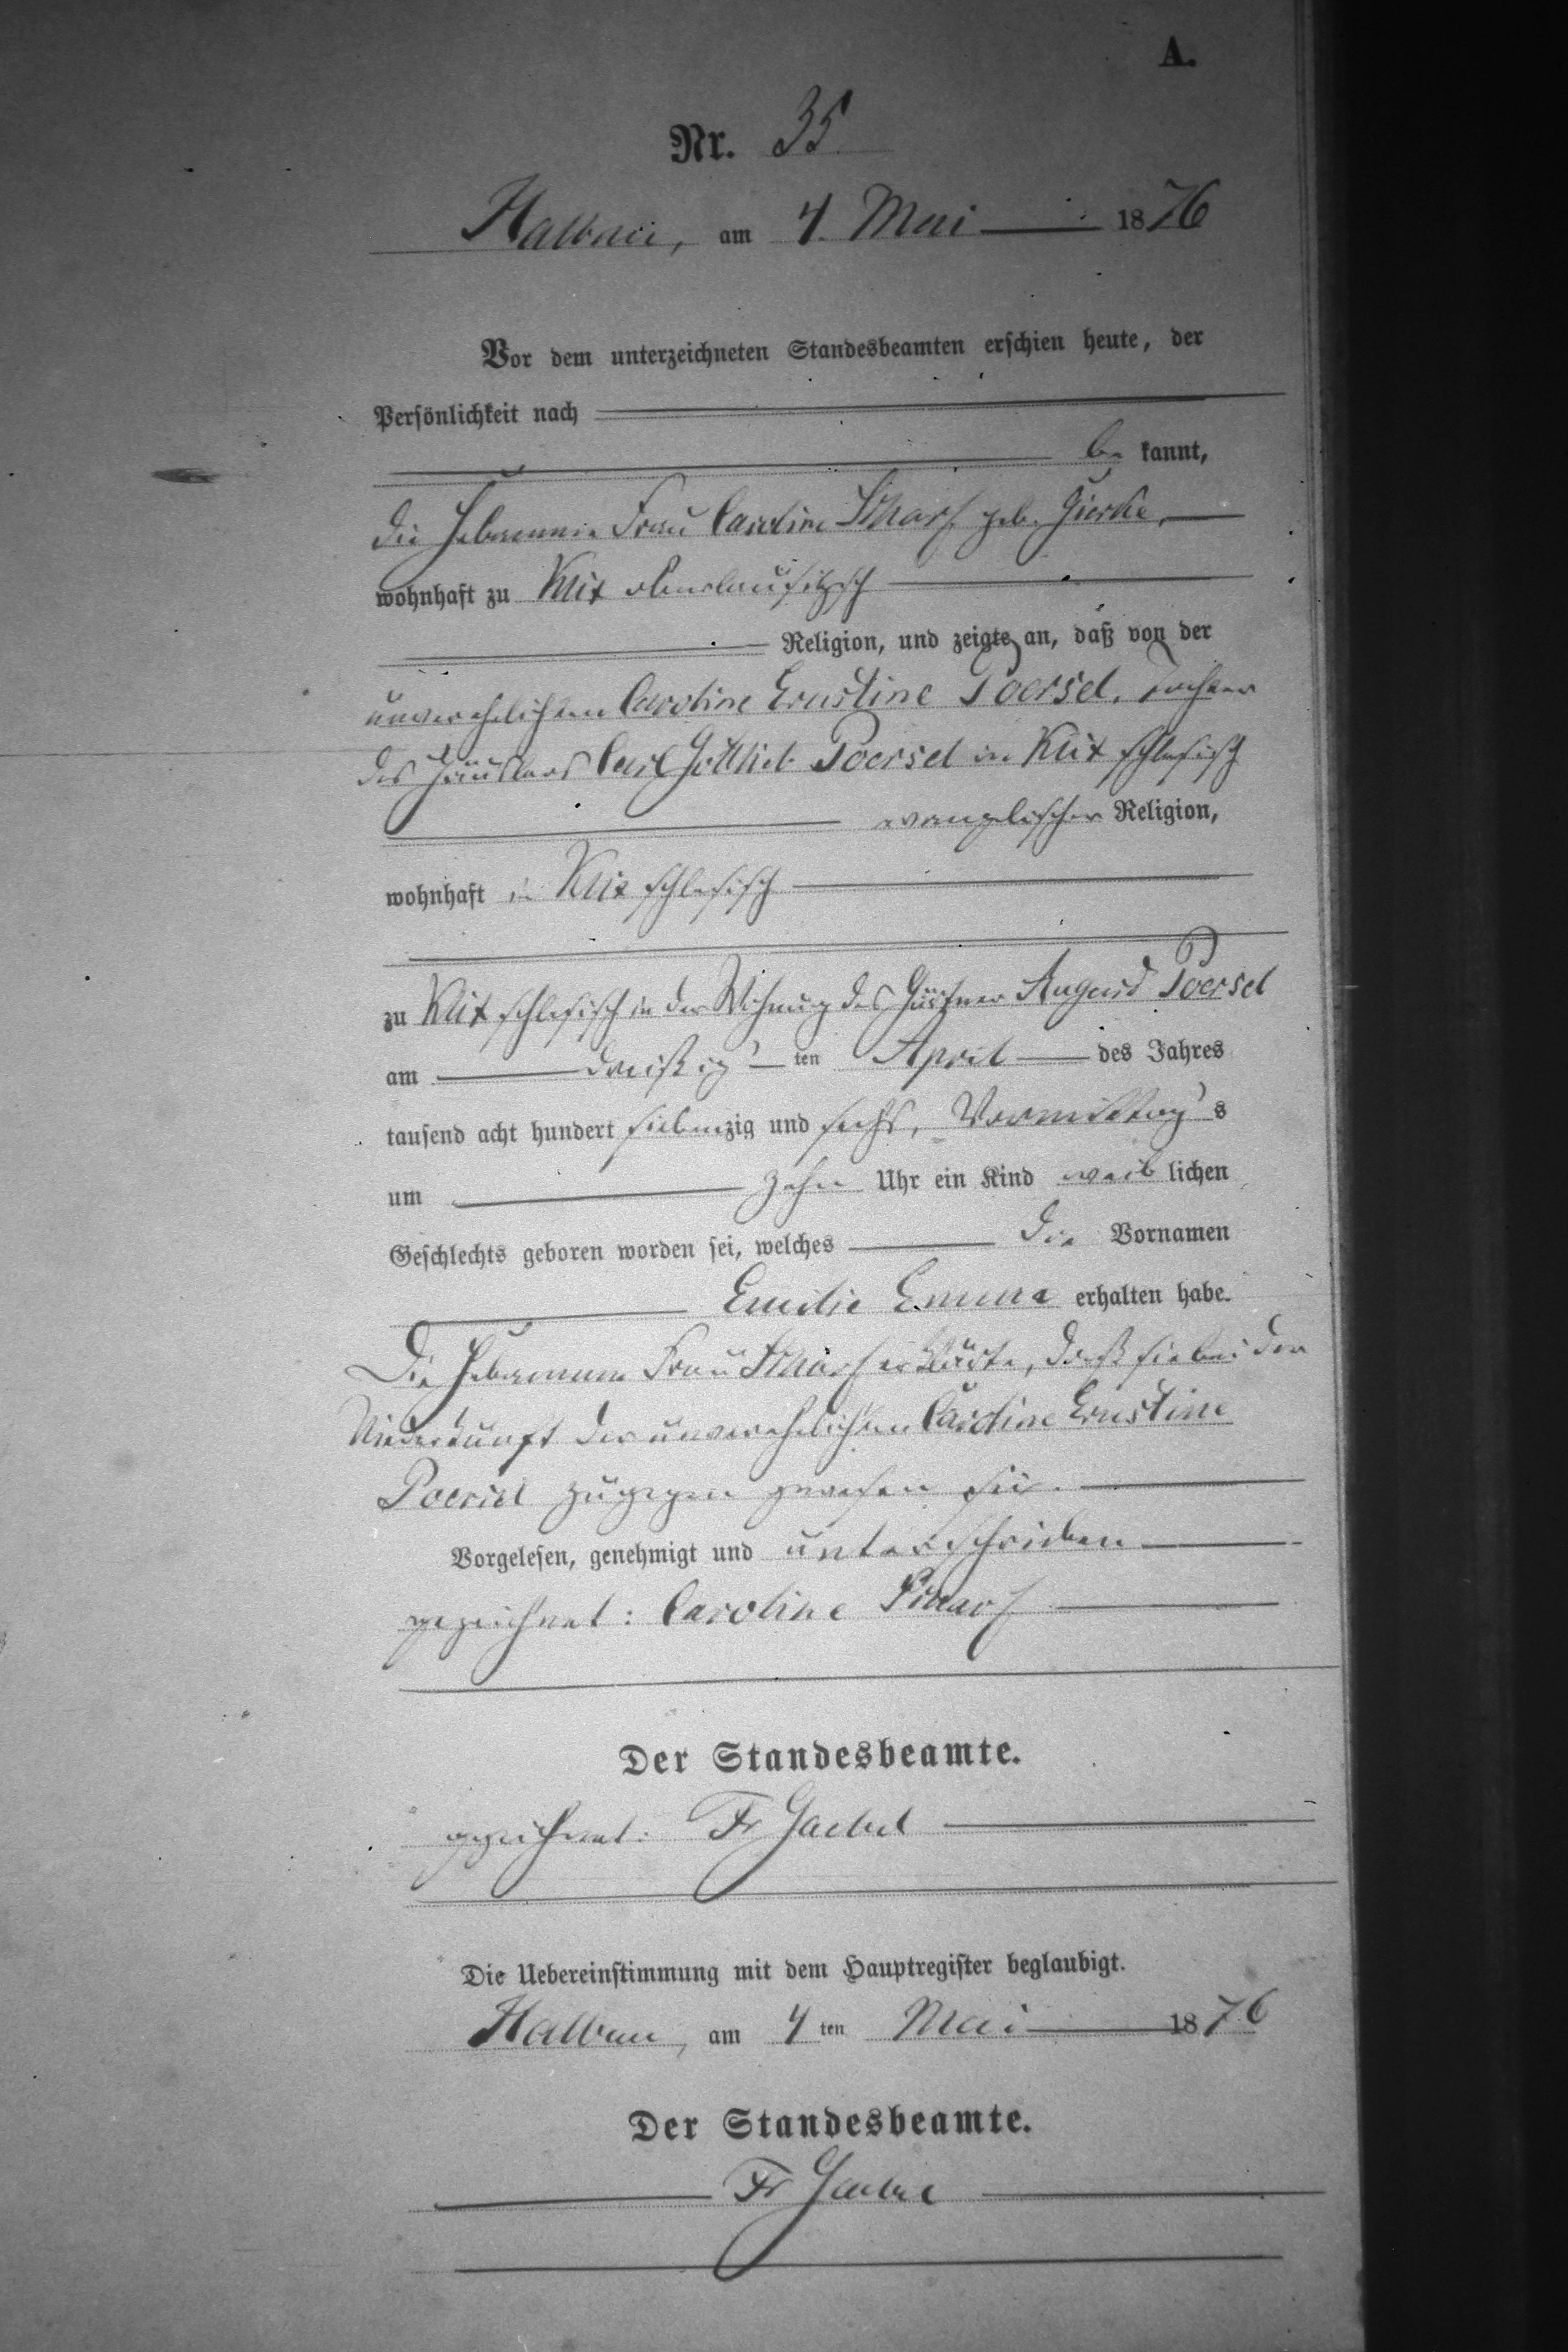 A.
Nr. 35.
Halbau, am 4. Mai 1876
Vor dem unterzeichneten Standesbeamten erschien heute, der
Persönlichkeit nach
be kannt,
die Hebamme Frau Caroline Scharf geb. Gierke,
wohnhaft zu Klix oberlausitzisch
Religion, und zeigte an, daß von der
unverehelichten Caroline Ernstine Poersel, Tochter
des Häuslers Carl Gottlieb Poersel in Klix schlesisch
evangelischer Religion,
wohnhaft in Klix schlesisch
zu Klix schlesisch in der Wohnung des Gärtner August Poersel
am dreißig ten April des Jahres
tausend acht hundert siebenzig und sechs, Vormittag s
um zehn Uhr ein Kind weib lichen
Geschlechts geboren worden sei, welches die Vornamen
Emilie Emma erhalten habe.
Die Hebamme Frau Scharf erklärte, daß sie bei der
Niederkunft der unverehelichten Caroline Ernstine
Poersel zugegen gewesen sei.
Vorgelesen, genehmigt und unterschrieben
gezeichnet: Caroline Scharf
Der Standesbeamte.
gezeichnet: Fr Gaebel
Die Uebereinstimmung mit dem Hauptregister beglaubigt.
Halbau, am 4 ten Mai 1876
Der Standesbeamte.
Fr Gaebel